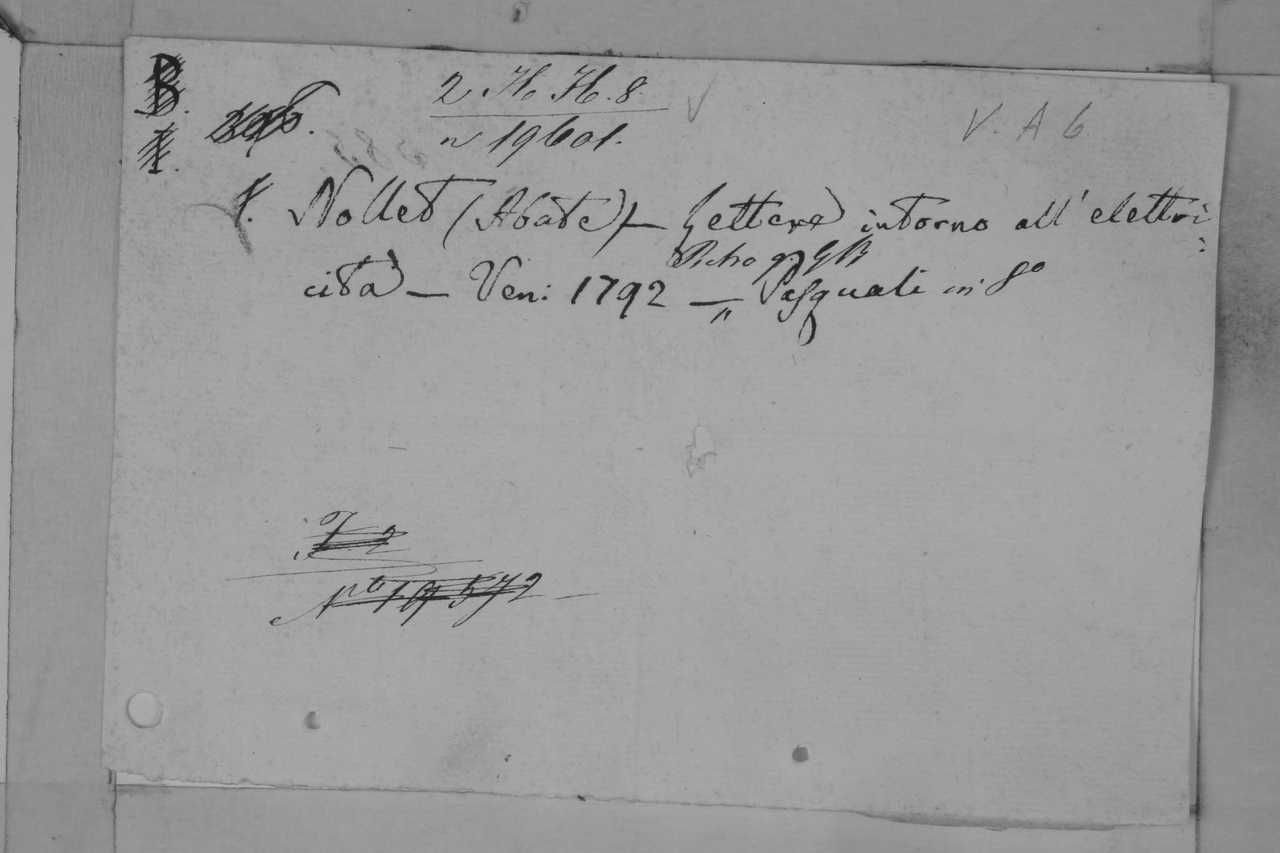 B.
I.
2 H. H. 8.
n 19601.
V. A 6
Nollet (Abate) — Lettere intorno all' elettri:
cità — Ven: 1792 — Pasquali in 8º
T 2
Nº 19572